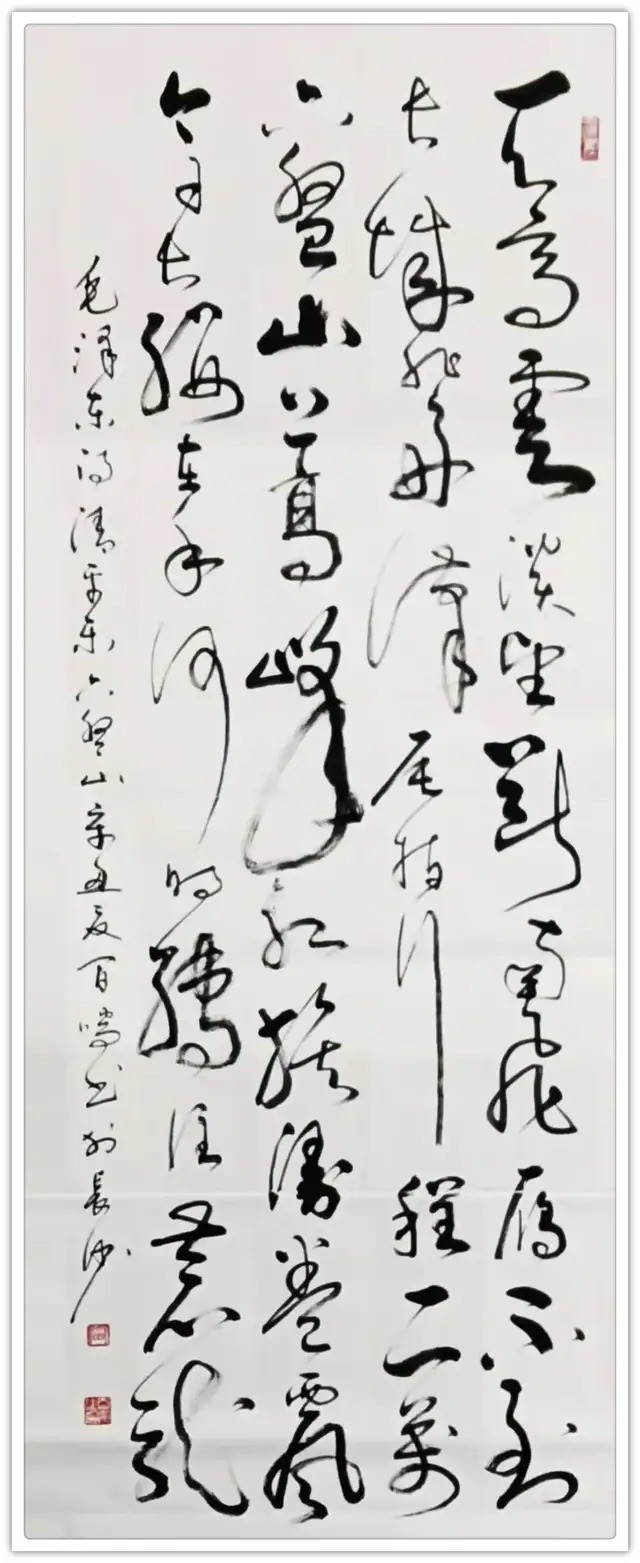 天高雲淡望斷南飛雁不到
長城非好漢屈指行程二萬
六盤山上高峰紅旗漫卷西風
今日長纓在手何時縛住蒼龍
毛澤東詞清平樂六盤山辛丑夏百鳴書於長沙